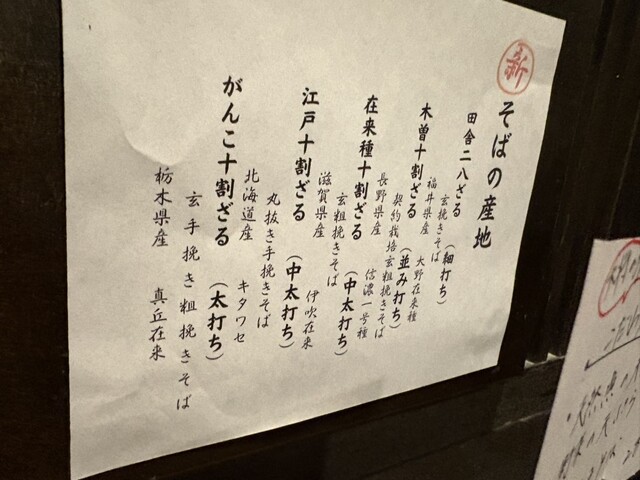 新
そばの産地
田舎二八ざる（細打ち）
玄挽きそば
福井県産　大野在来種
木曽十割ざる（並み打ち）
契約栽培玄粗挽きそば
長野県産　信濃一号種
在来種十割ざる（中太打ち）
玄粗挽きそば
滋賀県産　伊吹在来
江戸十割ざる（中太打ち）
丸抜き手挽きそば
北海道産　キタワセ
がんこ十割ざる（太打ち）
玄手挽き粗挽きそば
栃木県産　真丘在来